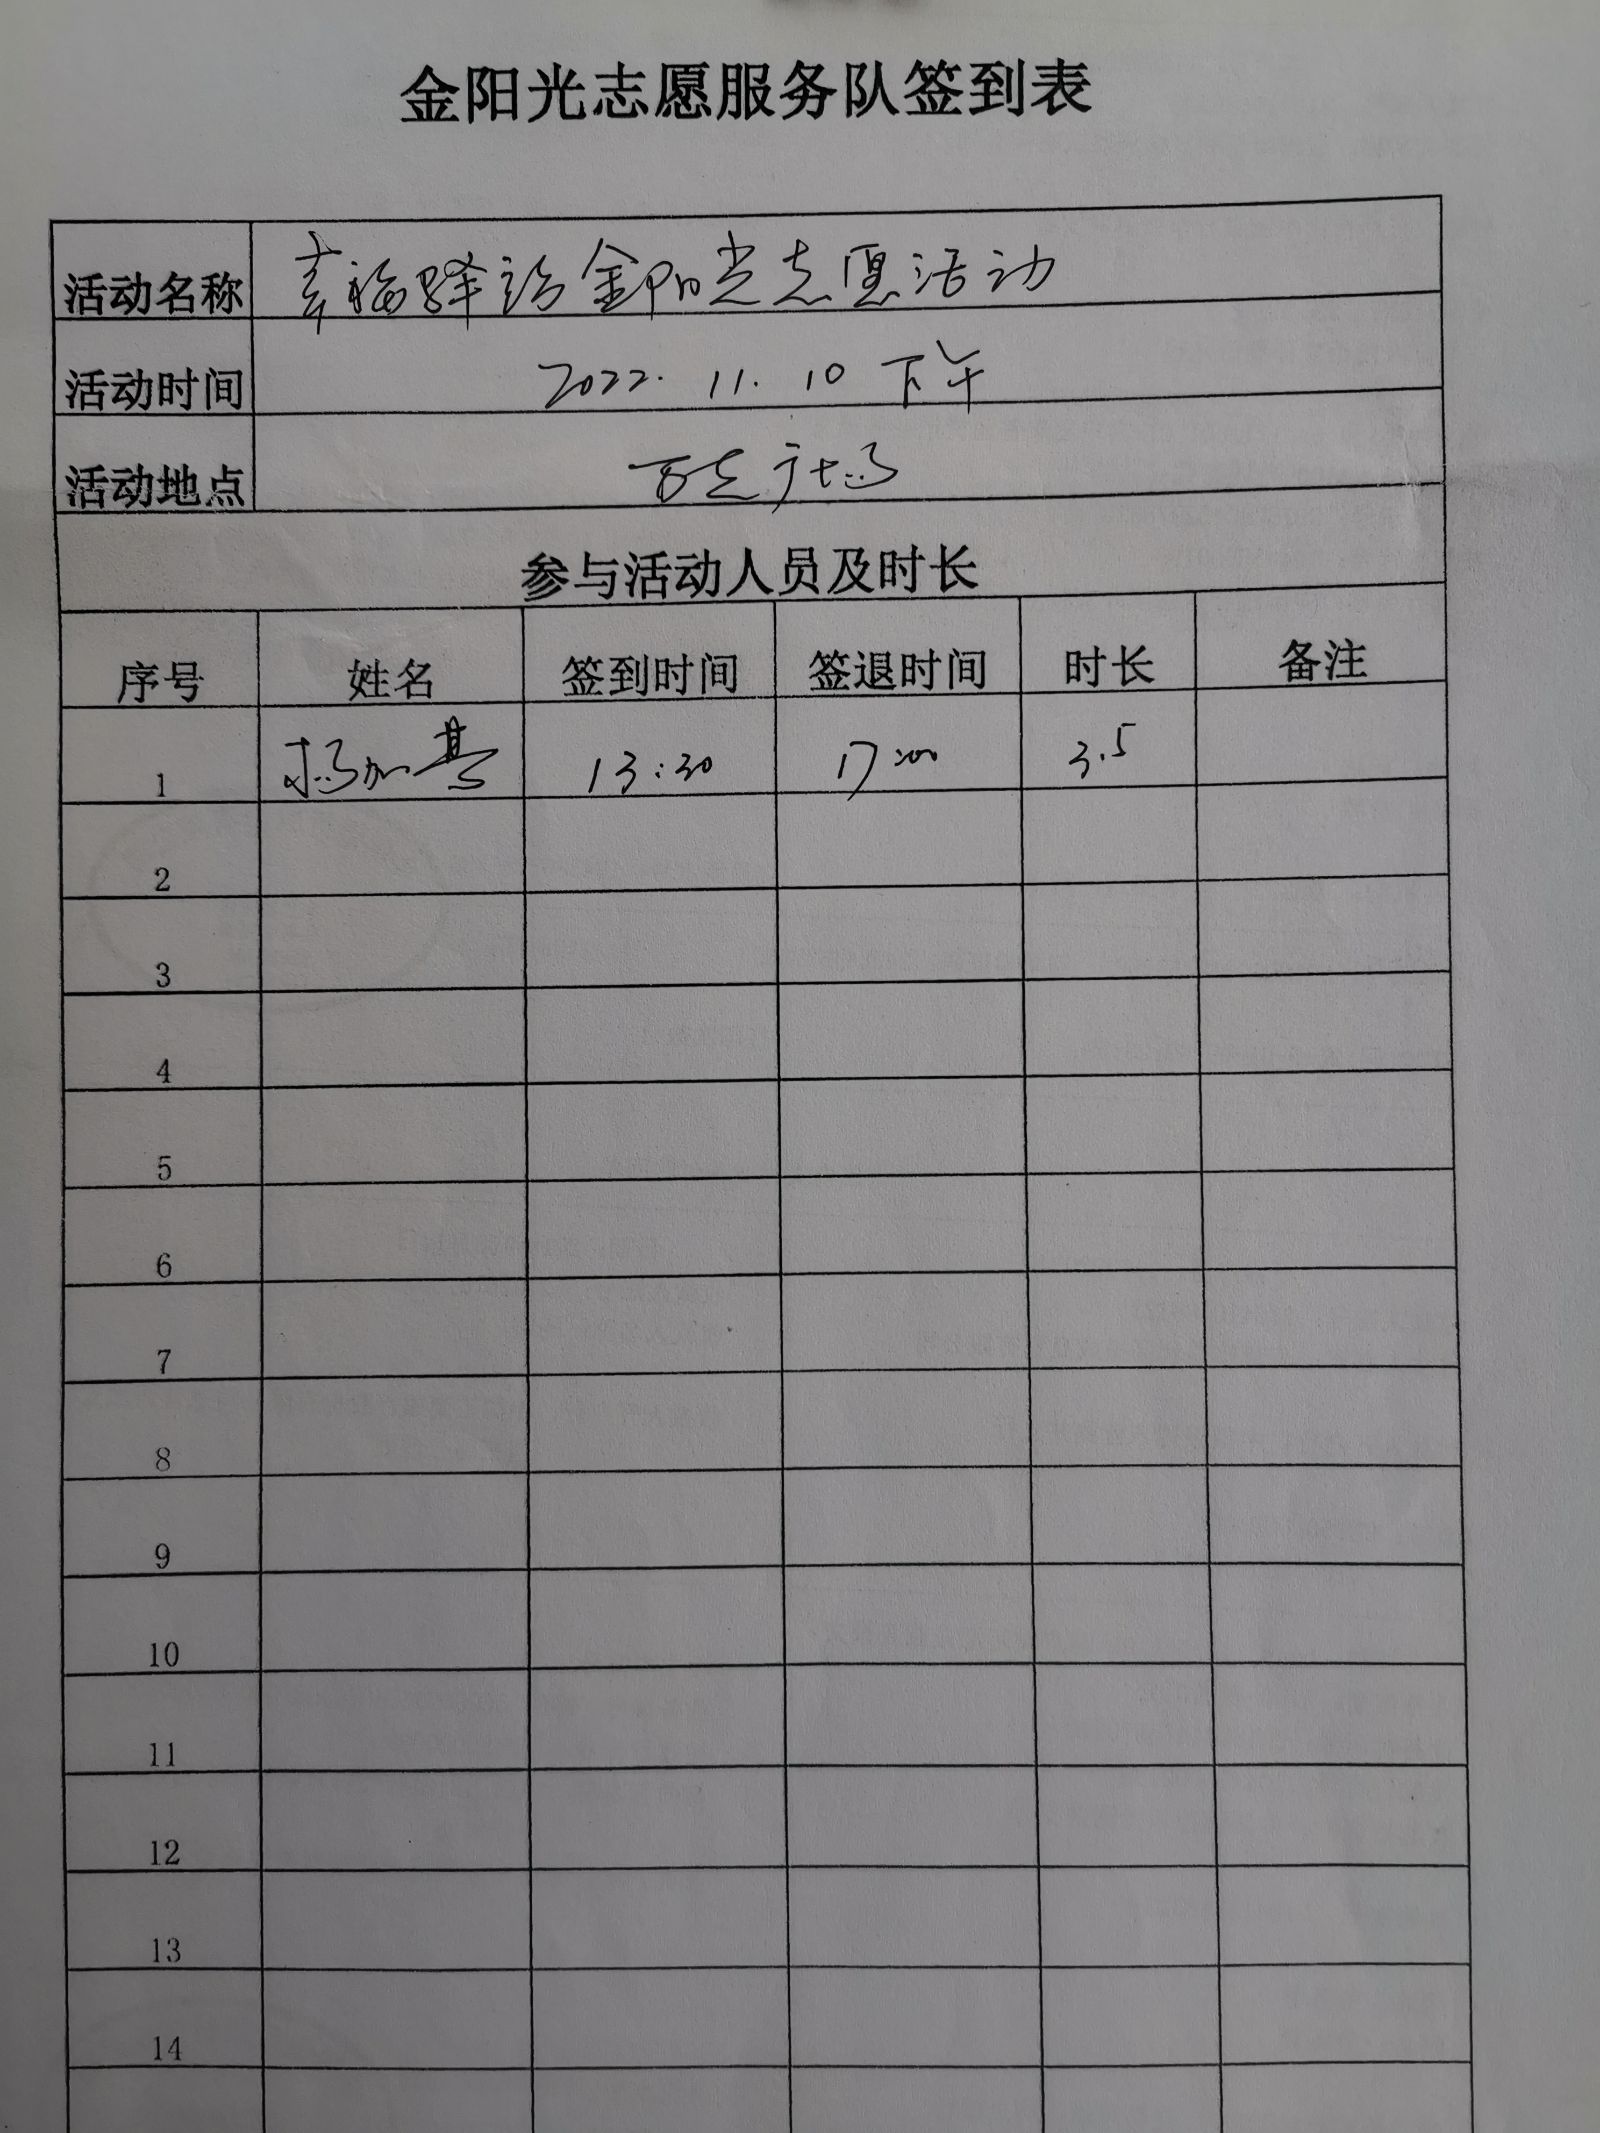 金阳光志愿服务队签到表
活动名称 幸福驿站金阳光志愿活动
活动时间 2022. 11. 10 下午
活动地点 广场
参与活动人员及时长
序号 姓名 签到时间 签退时间 时长 备注
1 杨加基 13:30 17:00 3.5
2
3
4
5
6
7
8
9
10
11
12
13
14